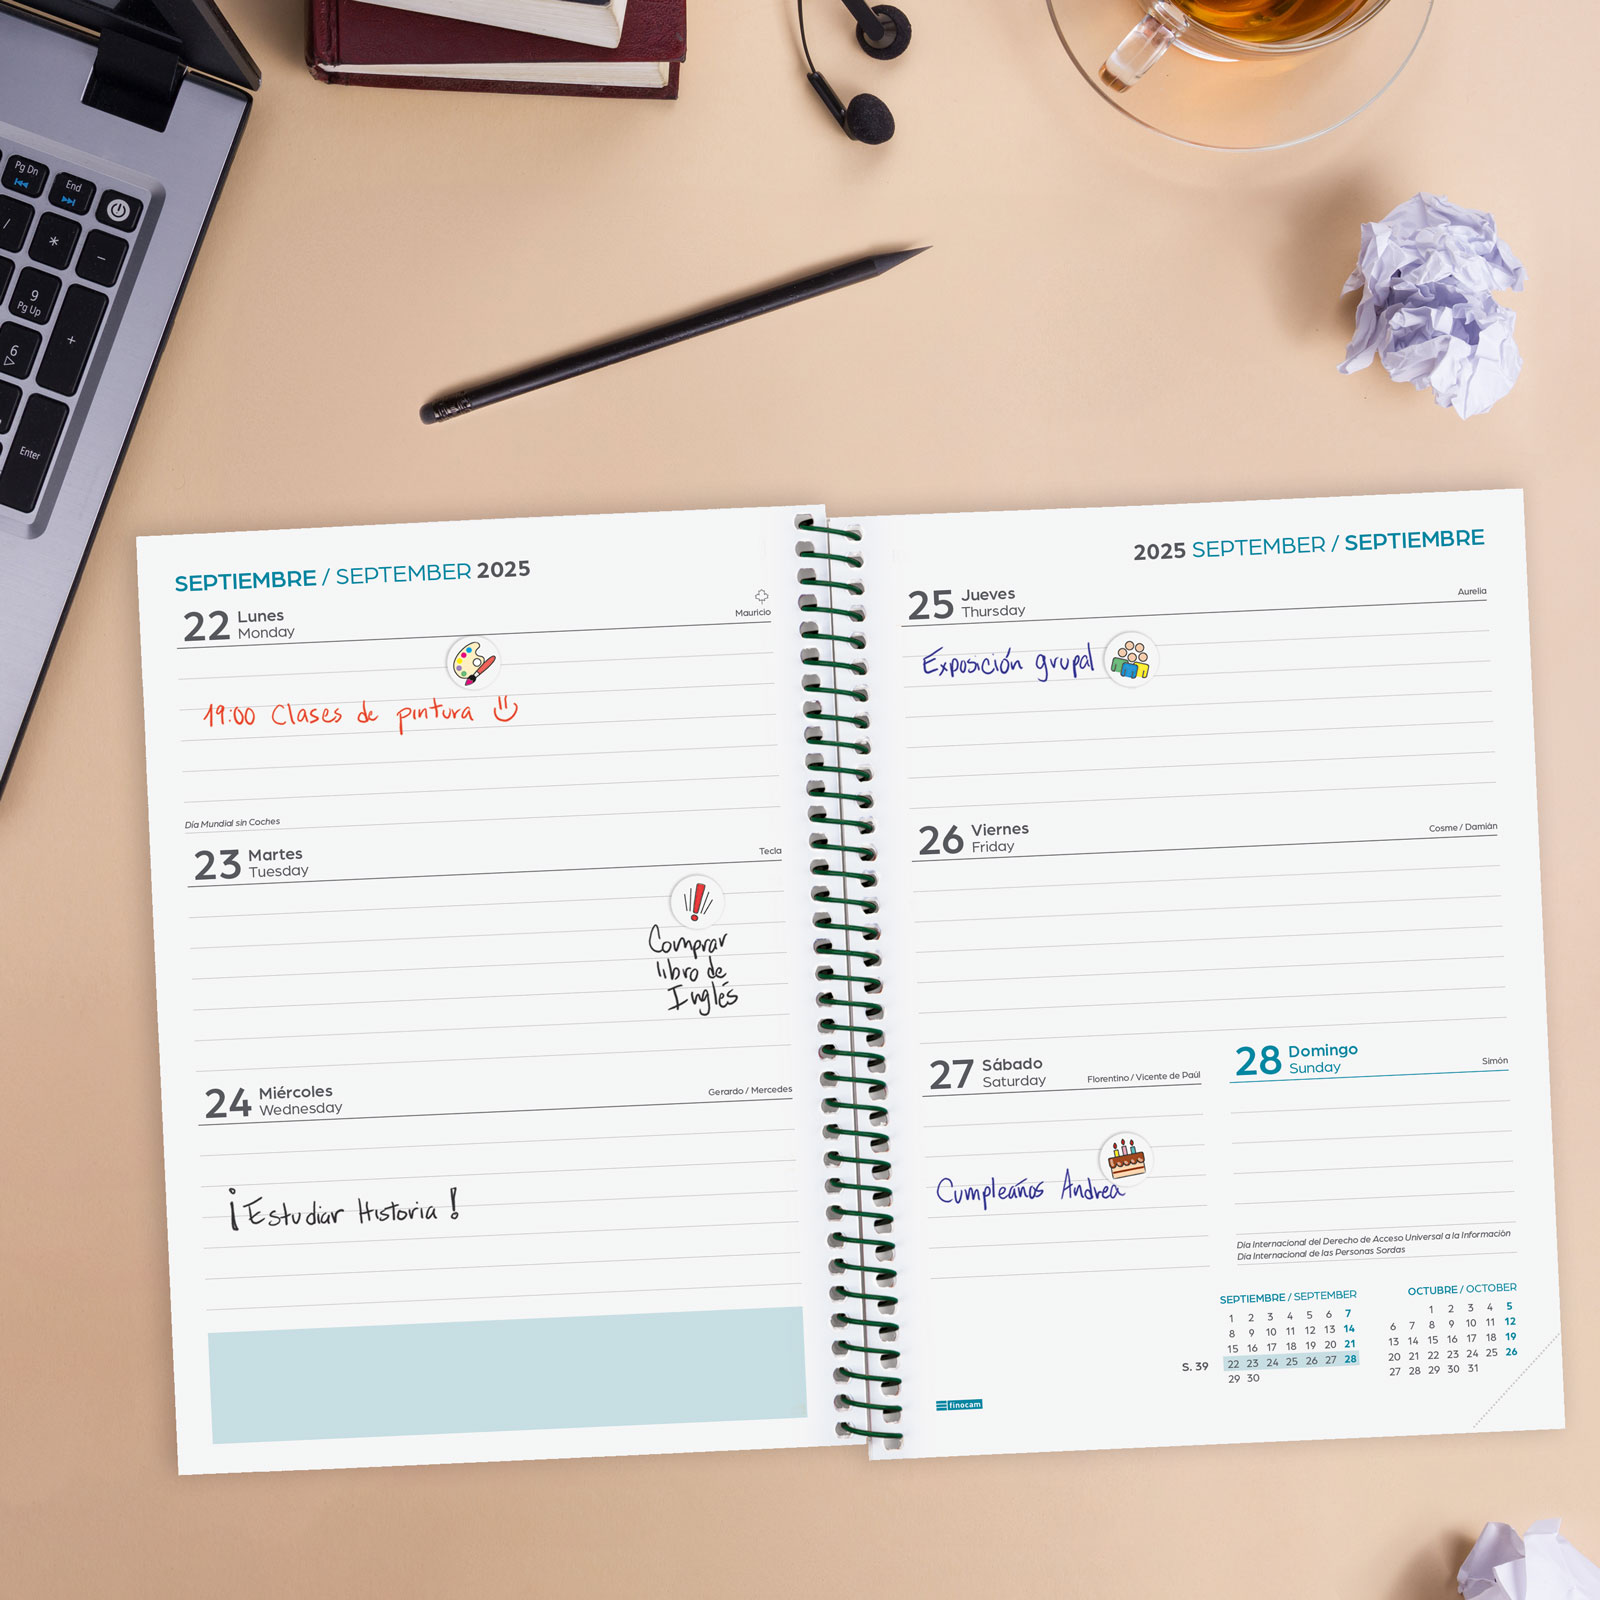 Pg Dn
End
/
*
-
9
Pg Up
+
6
Enter
SEPTIEMBRE / SEPTEMBER 2025
22 Lunes
Monday
Mauricio
19:00 Clases de pintura
Día Mundial sin Coches
23 Martes
Tuesday
Tecla
Comprar
libro de
Inglés
24 Miércoles
Wednesday
Gerardo / Mercedes
¡Estudiar Historia!
2025 SEPTEMBER / SEPTIEMBRE
25 Jueves
Thursday
Aurelia
Exposición grupal
26 Viernes
Friday
Cosme / Damián
27 Sábado
Saturday
Florentino / Vicente de Paúl
Cumpleaños Andrea
28 Domingo
Sunday
Simón
Día Internacional del Derecho de Acceso Universal a la Información
Día Internacional de las Personas Sordas
SEPTIEMBRE / SEPTEMBER
1 2 3 4 5 6 7
8 9 10 11 12 13 14
15 16 17 18 19 20 21
S. 39 22 23 24 25 26 27 28
29 30
OCTUBRE / OCTOBER
1 2 3 4 5
6 7 8 9 10 11 12
13 14 15 16 17 18 19
20 21 22 23 24 25 26
27 28 29 30 31
finocam